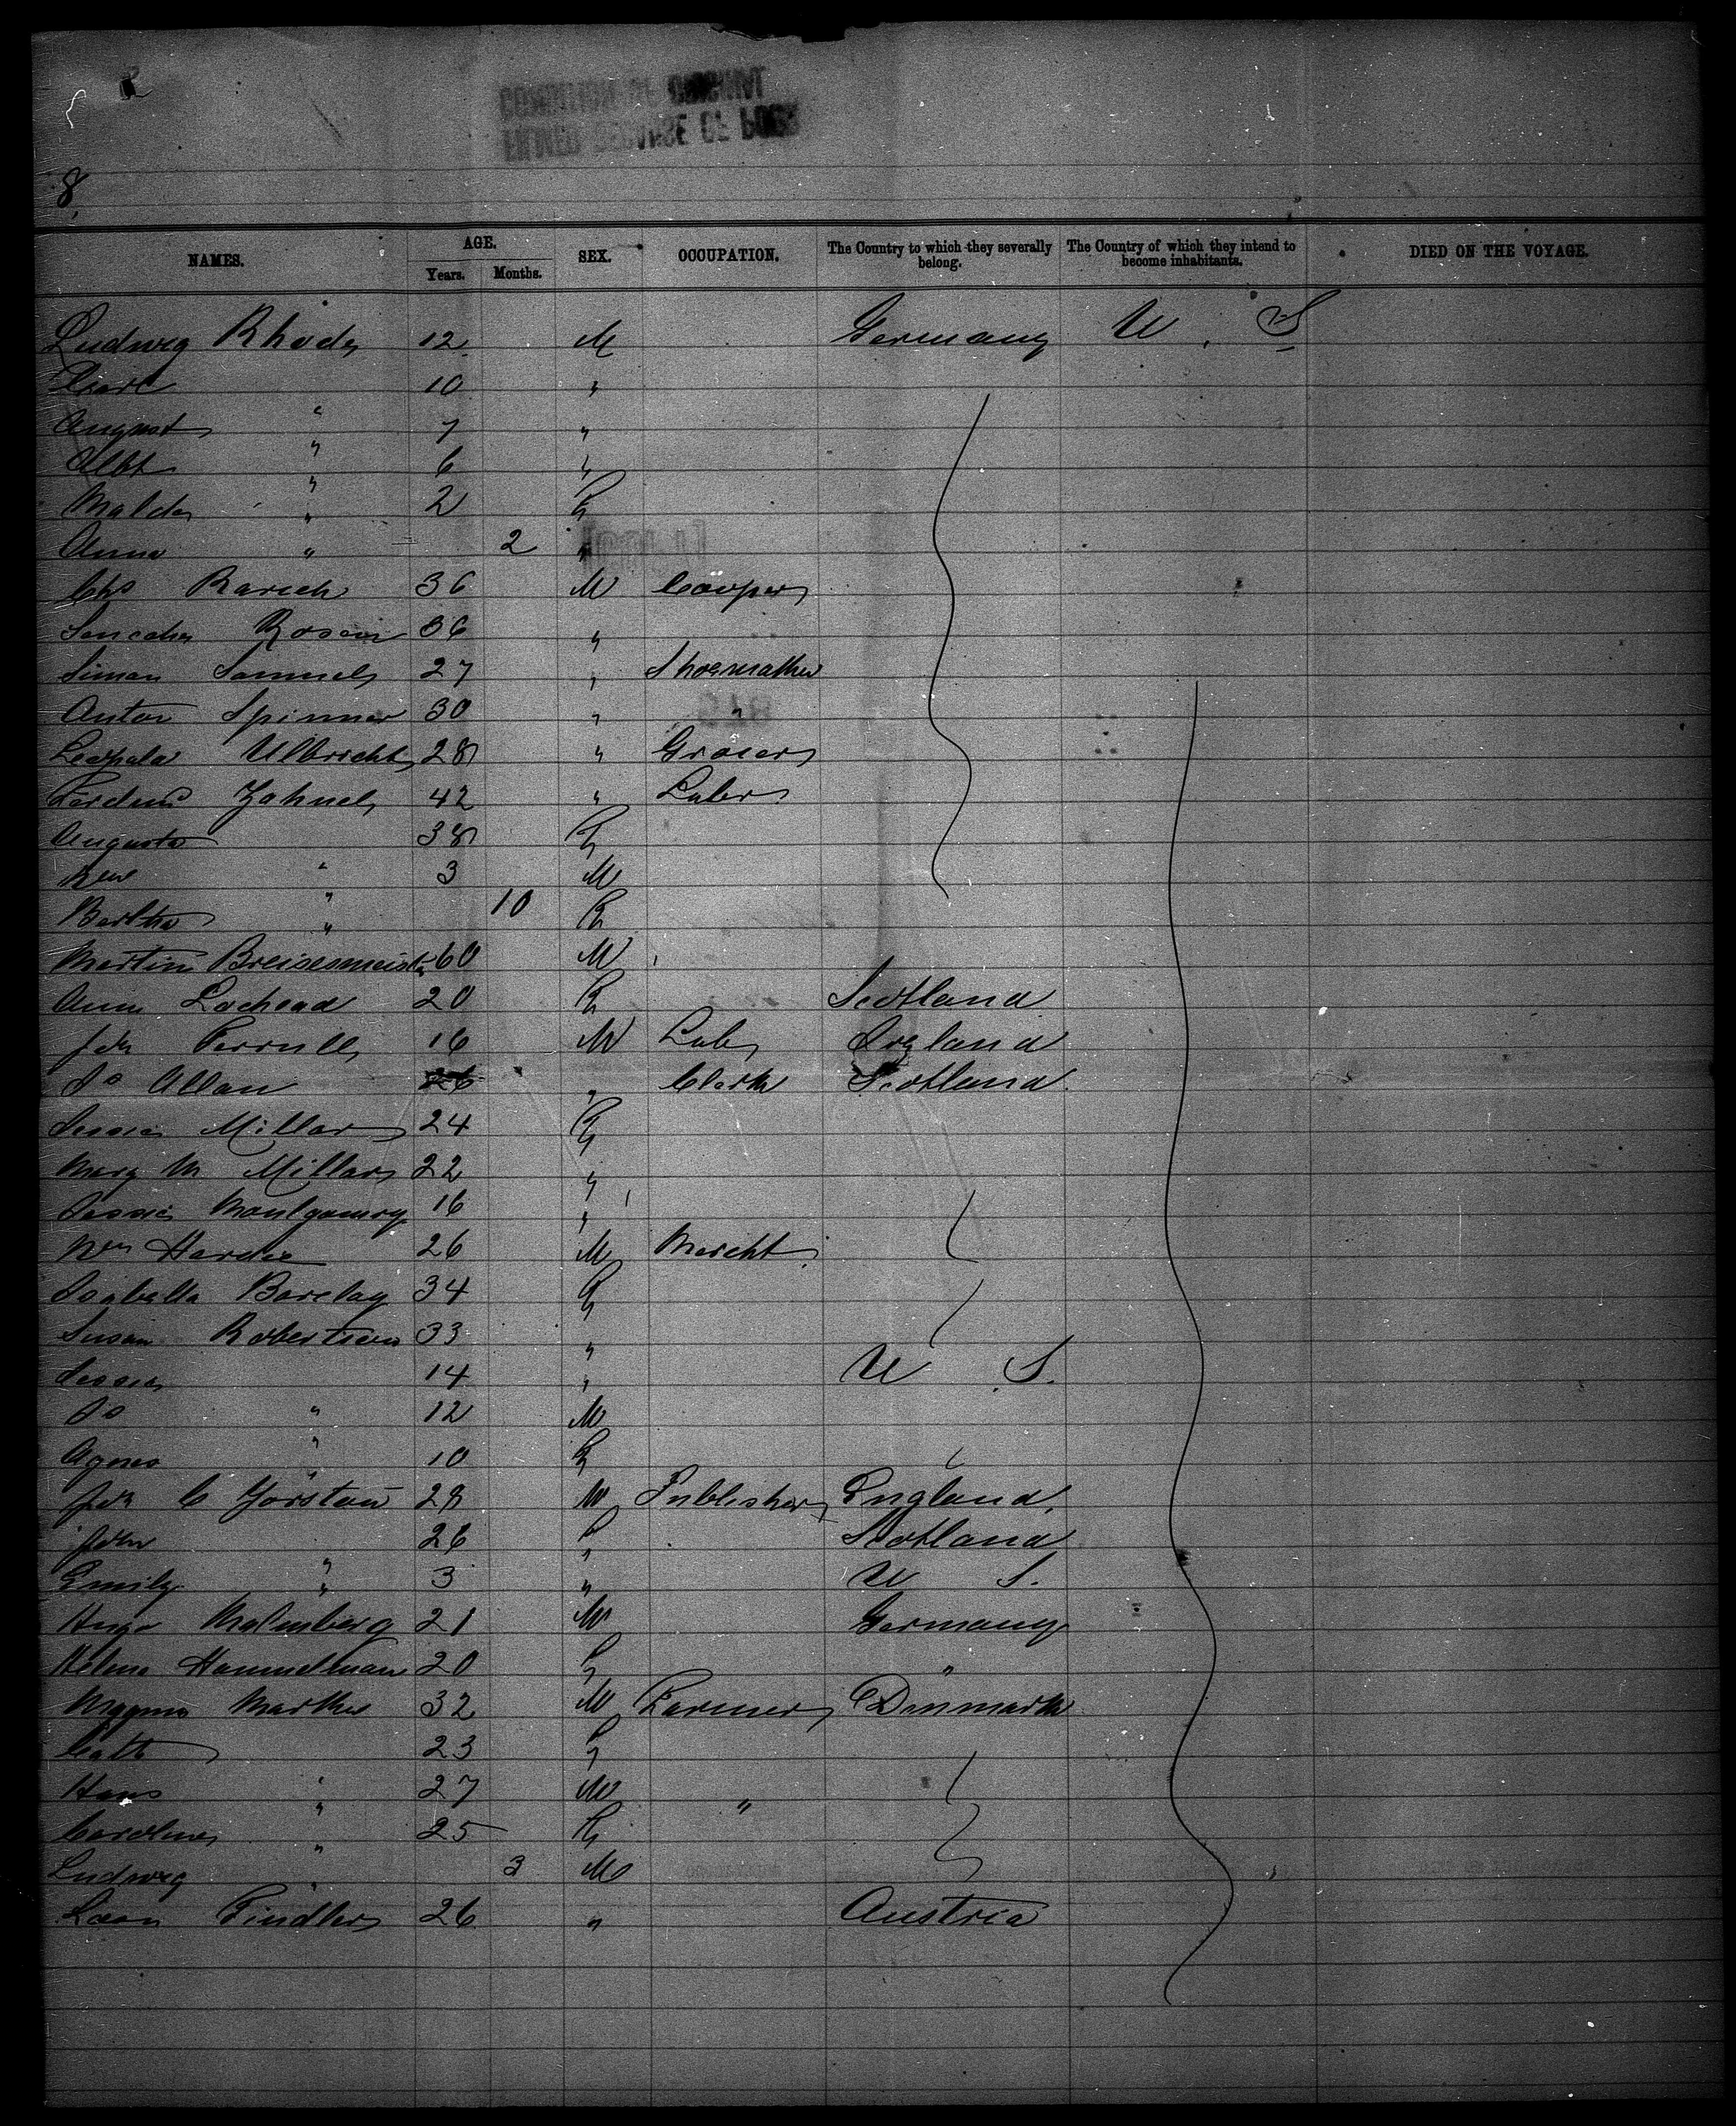 8.
NAMES. AGE. Years. Months. SEX. OCCUPATION. The Country to which they severally belong. The Country of which they intend to become inhabitants. DIED ON THE VOYAGE.
Ludwig Rhode 12 M Germany U. S
Carl " 10 "
August " 7 "
Albt " 6 "
Malda " 2 F
Anna " 2 "
Chs Rarich 36 M Cooper
Rosen 36 "
Simon Samuel 27 " Shoemaker
Anton Spinner 30 " "
Leopold Ulbricht 28 " Grocer
Ferdind Zahnel 42 " Labr
Augusta " 38 F
Rew " 3 M
Bertha " 10 F
Martin Breisesmeister 60 M
Ann Lochead 20 F Scotland
Jno 16 M Lab Ireland
Js Allan 26 " Clerk Scotland
Jessie Millar 24 F
Mary M Millar 22 "
Jessie Montgomery 16 "
Wm Hardie 26 M Mercht
Isabella Barclay 34 F
Susan Robertson 33 "
Jessie " 14 " U S.
Js " 12 M
Agnes " 10 F
Jno C Yorston 28 M Publisher England
" 26 F Scotland
Emily " 3 " U S.
Hugo Malmberg 21 M Germany
Helene Hammelman 20 F "
Magnus 32 M Farmer Denmark
Cath " 23 F
Hans " 27 M "
Caroline " 25 F
Ludwig " 3 M
Leon Findler 26 " Austria